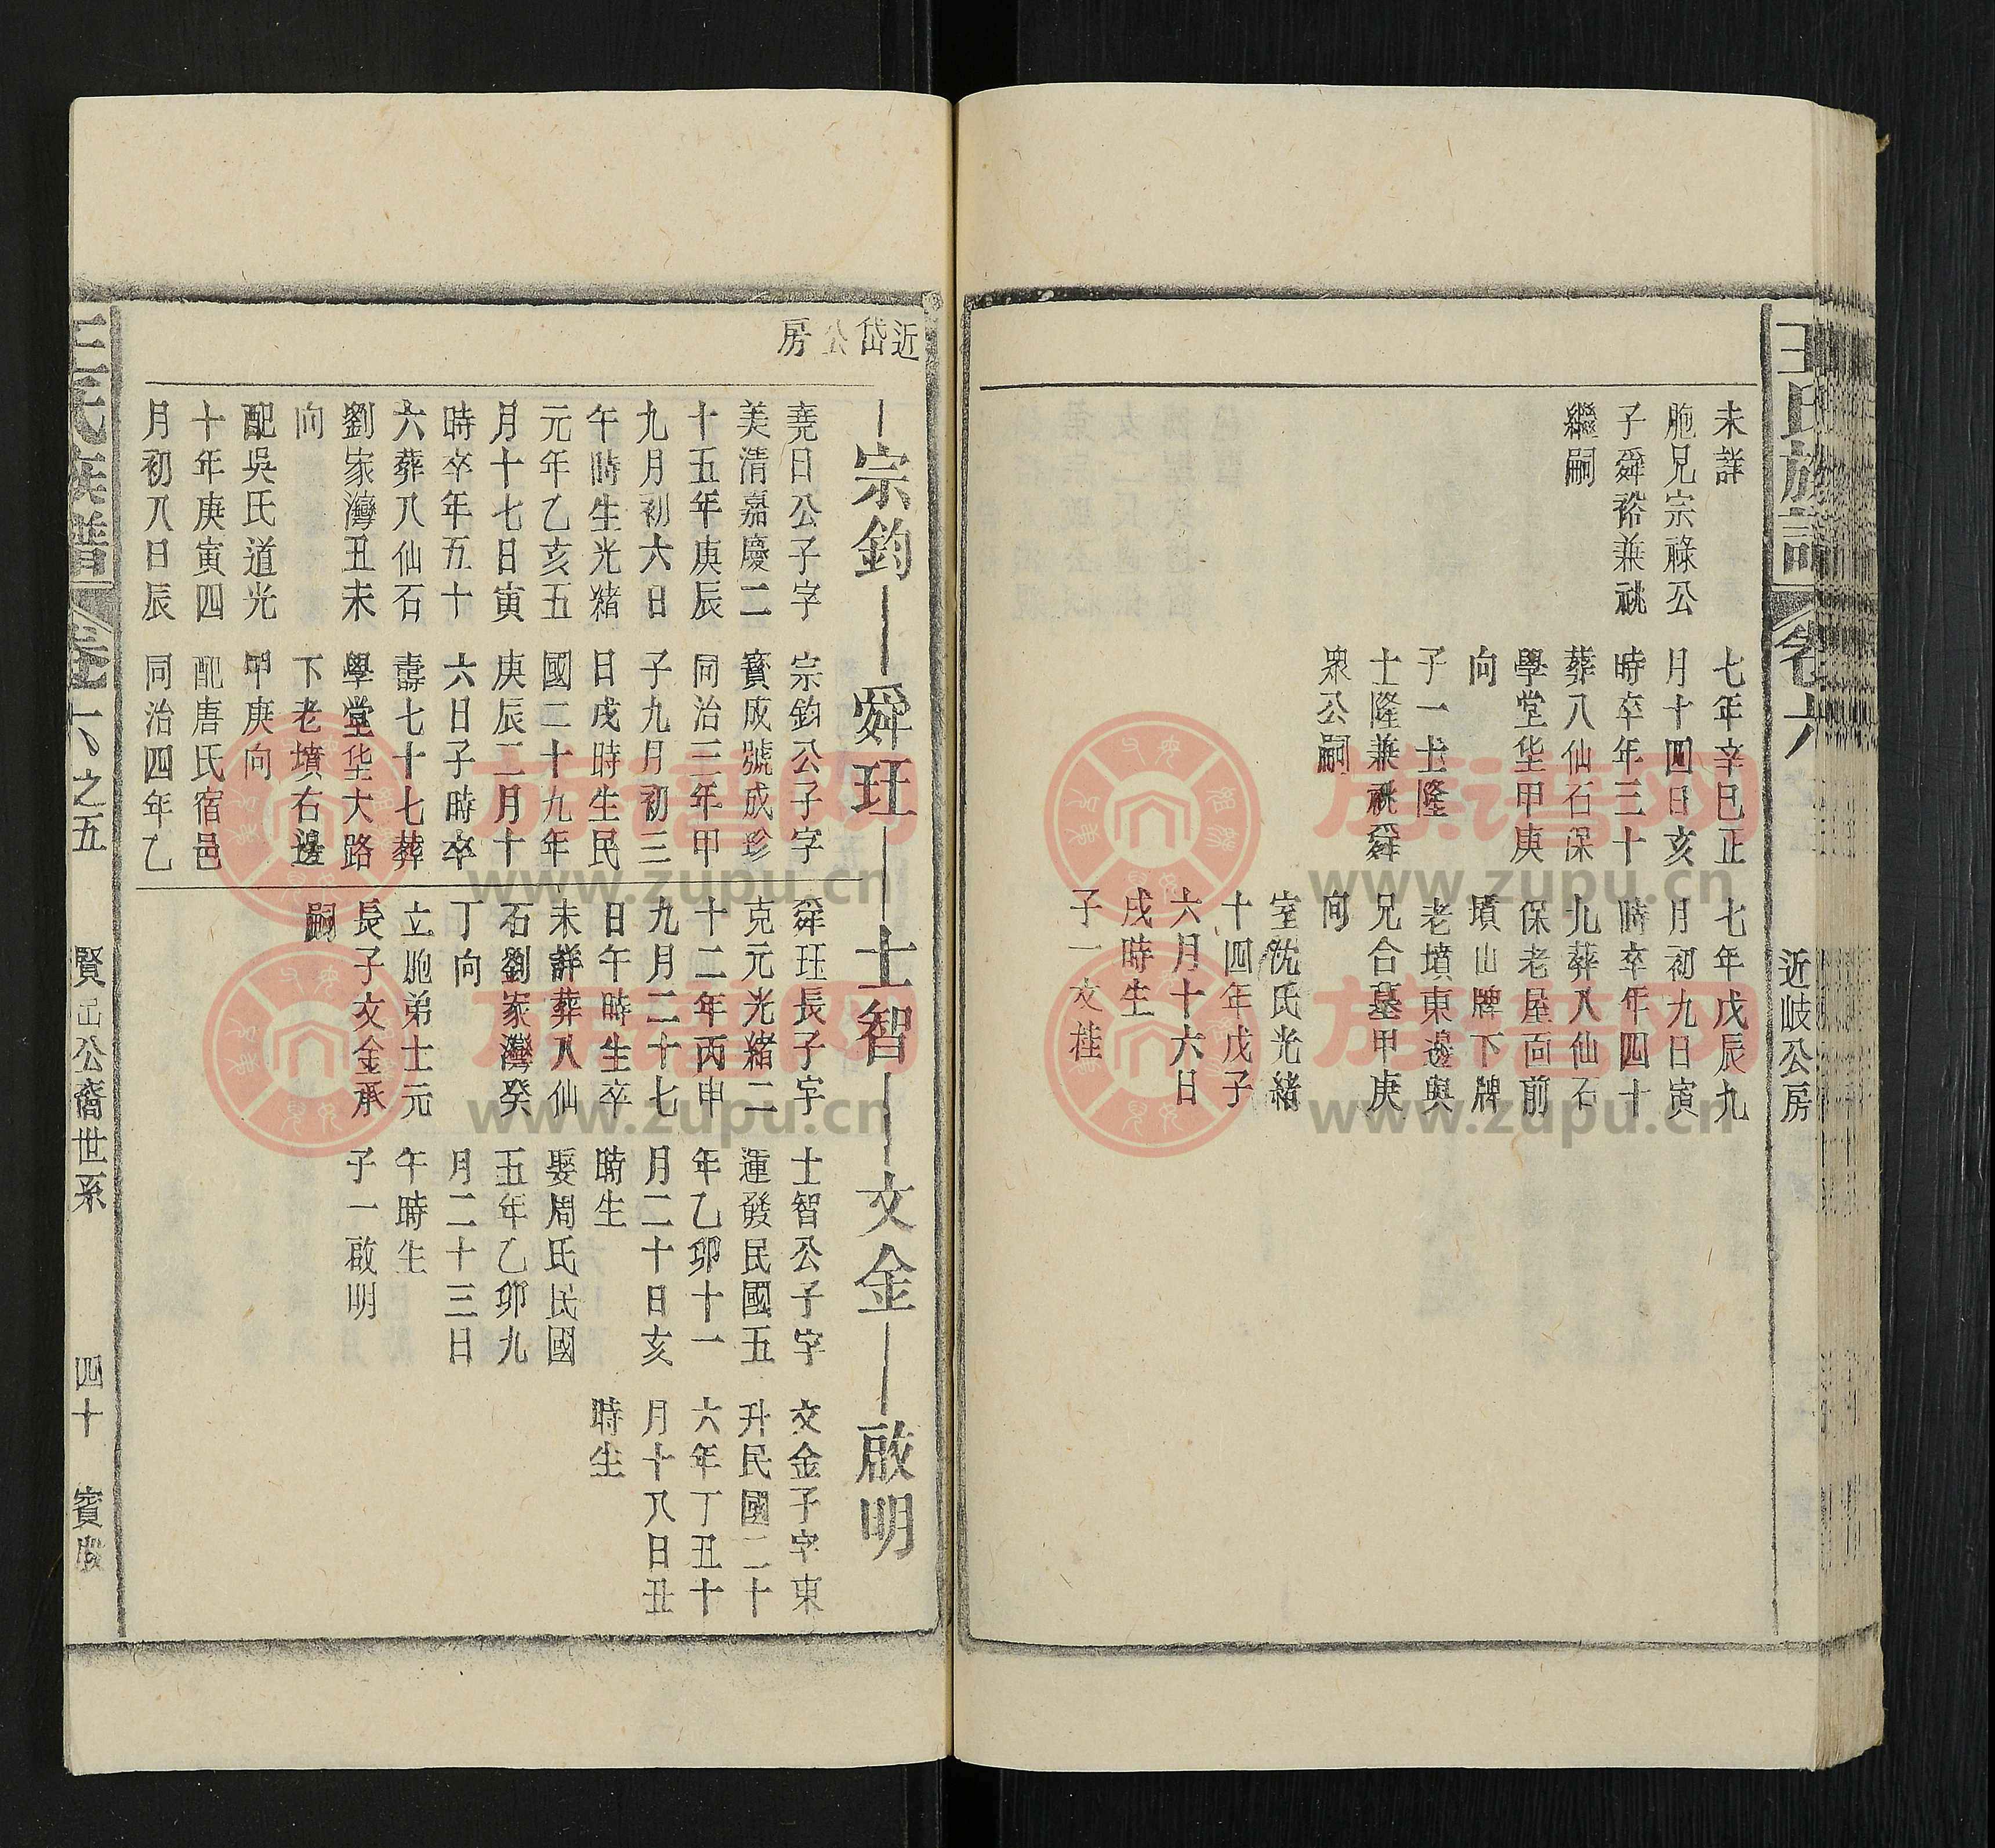 王氏族譜
卷六
近岐公房
未詳
胞兄宗祿公
子舜裕兼祧
繼嗣
七年辛巳正
月十四日亥
時卒年三十
葬八仙石保
學堂垈甲庚
向
子一士隆
士隆兼祧舜
眾公嗣
七年戊辰九
月初九日寅
時卒年四十
九葬八仙石
保老屋面前
墳山牌下牌
老墳東邊與
兄合墓甲庚
向
室沈氏光緒
十四年戊子
六月十六日
戌時生
子一文桂
近岱公房
宗鈞
舜玨
士智
文金
啟明
堯日公子字
美清嘉慶二
十五年庚辰
九月初六日
午時生光緒
元年乙亥五
月十七日寅
時卒年五十
六葬八仙石
劉家灣丑未
向
配吳氏道光
十年庚寅四
月初八日辰
宗鈞公子字
寶成號成珍
同治三年甲
子九月初三
日戌時生民
國二十九年
庚辰二月十
六日子時卒
壽七十七葬
學堂垈大路
下老墳右邊
甲庚向
配唐氏宿邑
同治四年乙
舜玨長子字
克元光緒二
十二年丙申
九月二十七
日午時生卒
未詳葬八仙
石劉家灣癸
丁向
立胞弟士元
長子文金承
嗣
士智公子字
運發民國五
年乙卯十一
月二十日亥
時生
娶周氏民國
五年乙卯九
月二十三日
午時生
子一啟明
文金子字東
升民國二十
六年丁丑十
月十八日丑
時生
王氏族譜
卷六之五
賢 公裔世系
四十
族谱网
www.zupu.cn
族谱网
www.zupu.cn
族谱网
www.zupu.cn
族谱网
www.zupu.cn